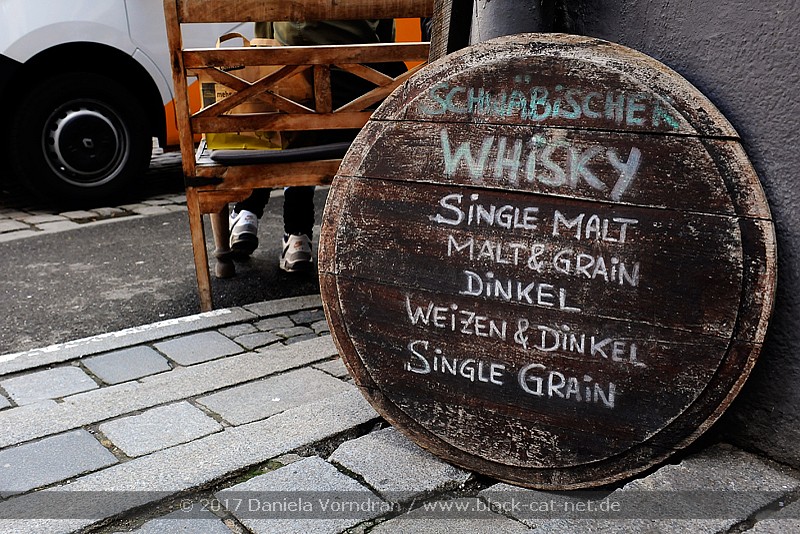 SCHWÄBISCHER
WHiSKY
SiNGLE MALT
MALT & GRAiN
DiNKEL
WEiZEN & DiNKEL
SiNGLE GRAiN
© 2017 Daniela Vorndran / www.black-cat-net.de